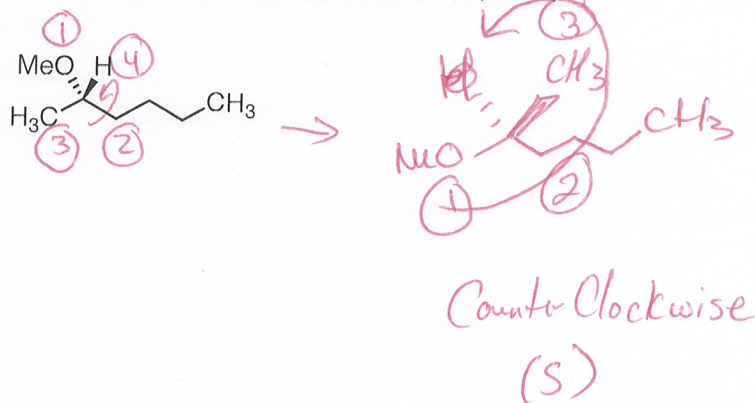 1
MeO H 4
H3C CH3
3 2
3
H CH3
MeO CH3
1 2
Counter Clockwise
(S)